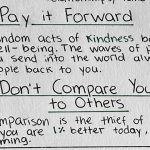 Pay it Forward
andom acts of kindness b
ell-being. The waves of p
u send into the world alwa
ople back to you.
Don't Compare You
to Others
omparison is the thief of
you are 1% better today,
ming.